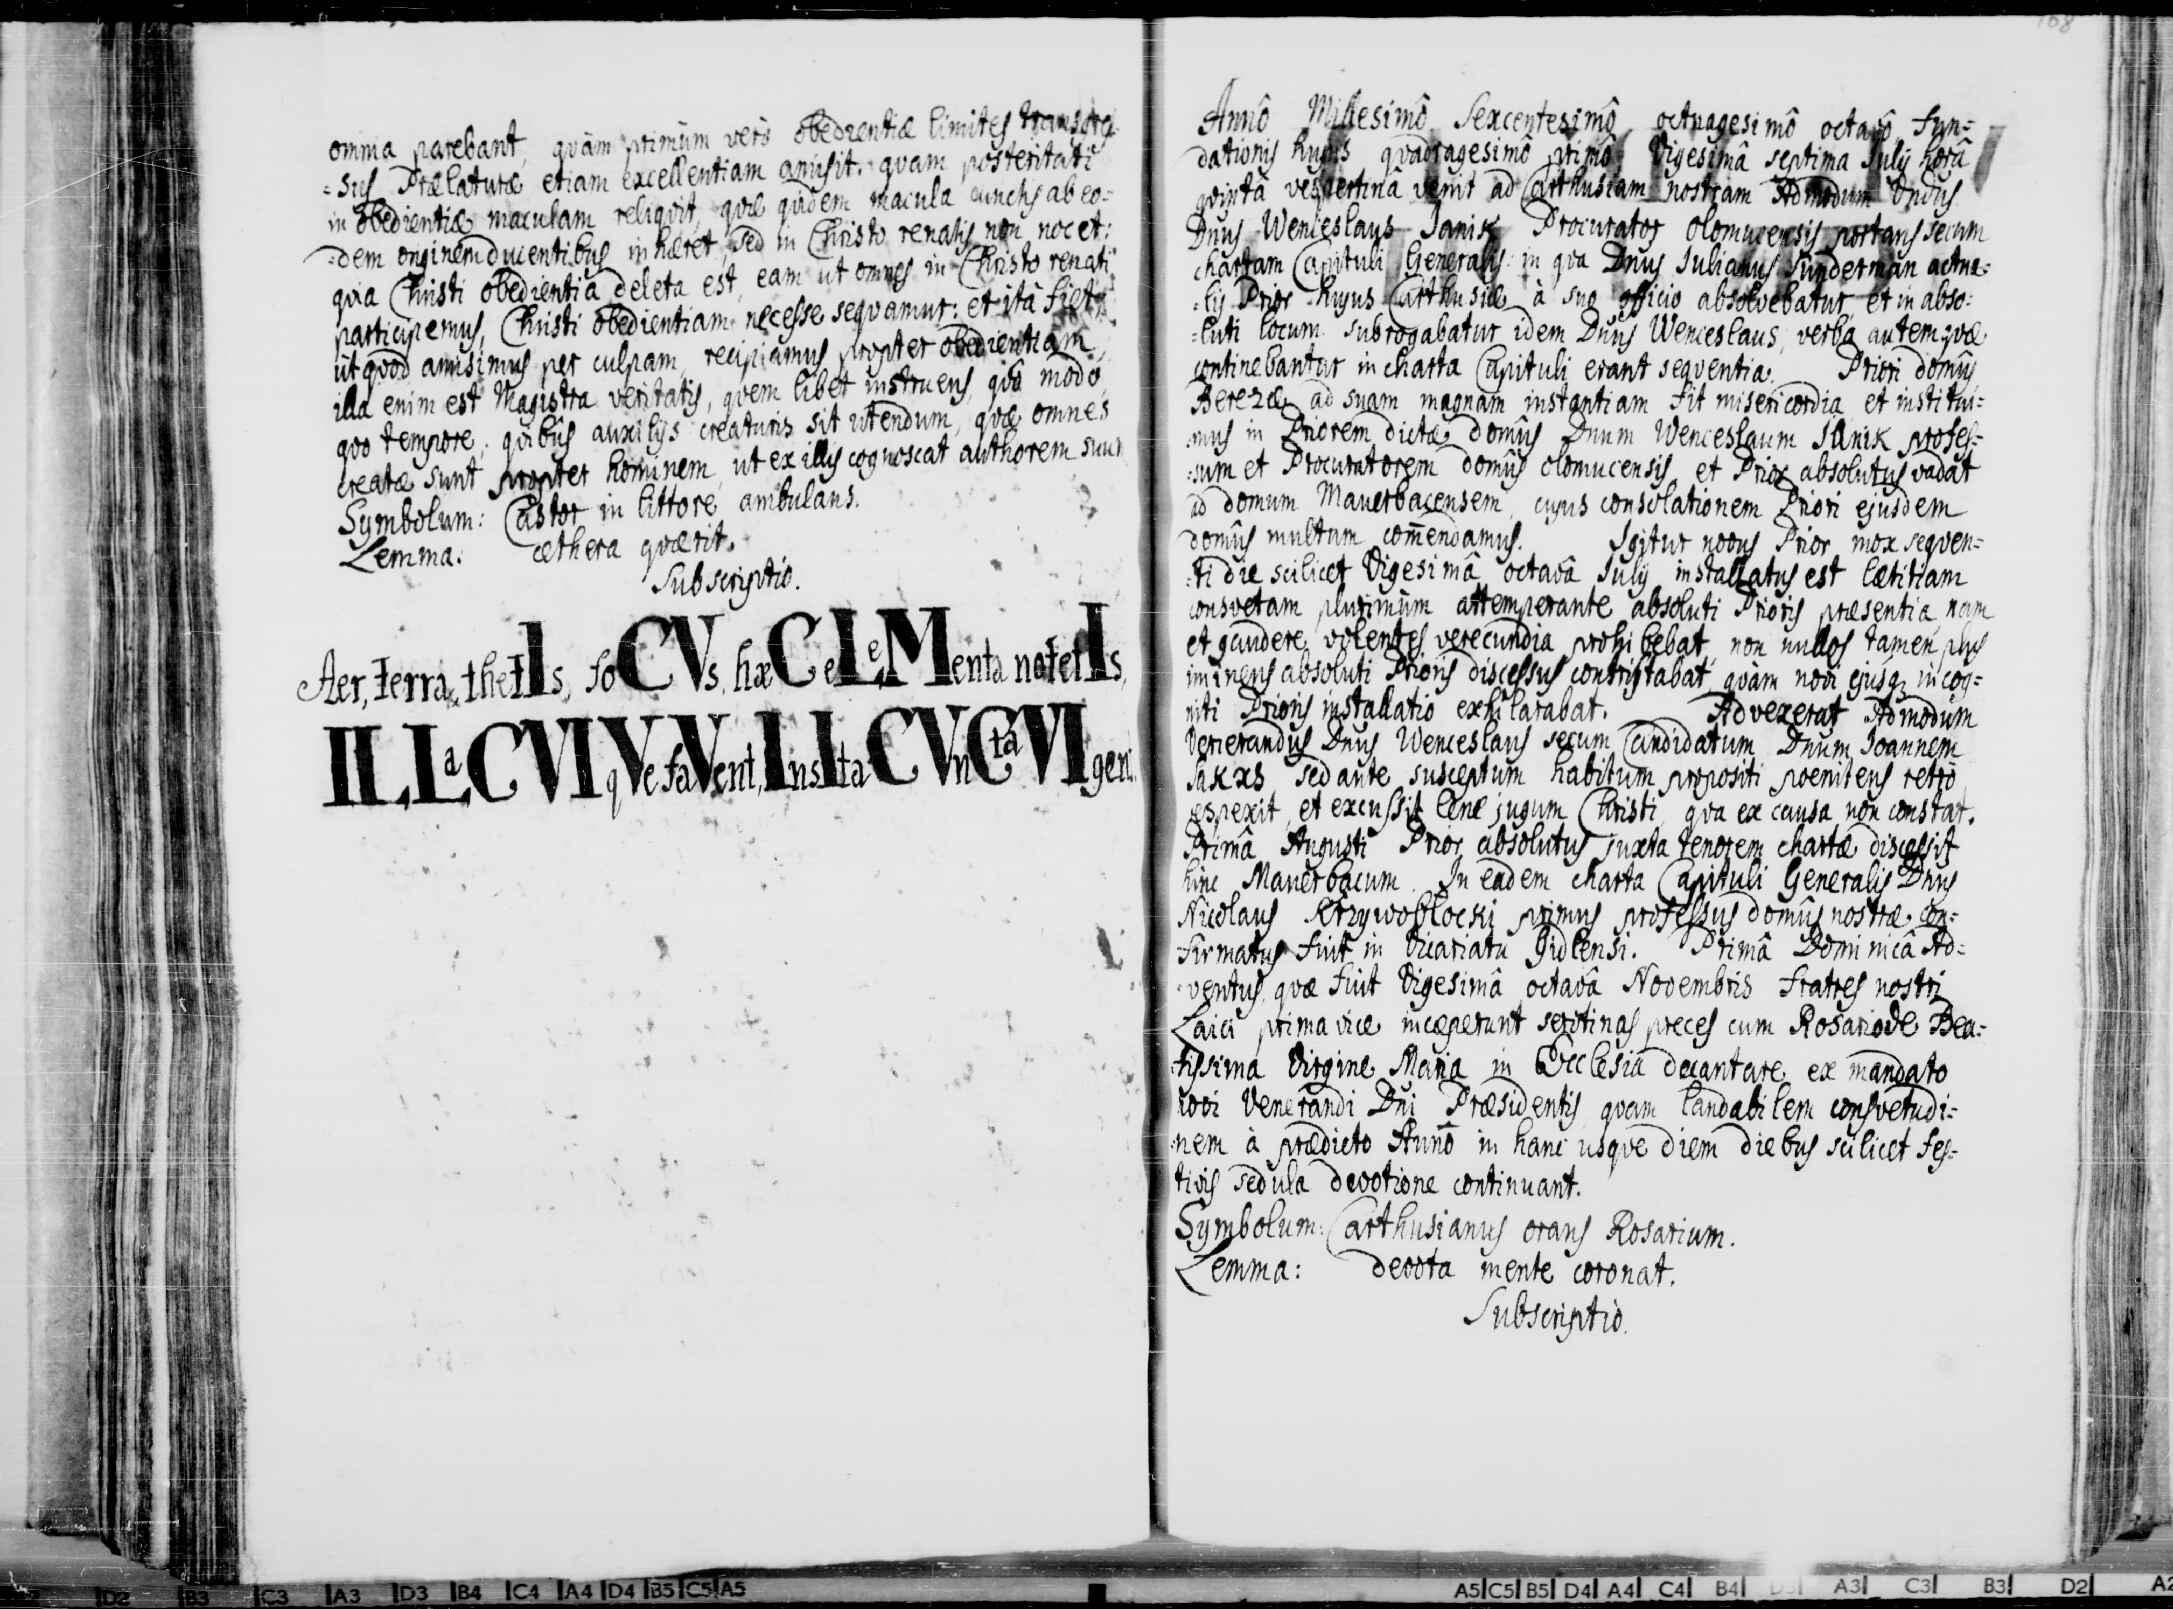 omnia parebant, quàm primùm verò obedientiæ limites transgres
=sus Prælaturæ etiam excellentiam amisit. quam posteritati
in obedientiæ maculam reliquit, quæ quidem macula cunctis ab eo-
=dem originem ducentibus inhæret, sed in Christo renatis non nocet:
quia Christi obedientia deleta est, eam ut omnes in Christo renati
participemus, Christi obedientiam necesse sequamur: et ità fiet
ut quod amisimus per culpam, recipiamus propter obedientiam,
illa enim est Magistra veritatis, quem libet instruens, quô modô,
quo tempore, quibus auxilijs creaturis sit utendum, quæ omnes
creatæ sunt propter hominem, ut ex illis cognoscat authorem suum
Symbolum: Castor in littore ambulans.
Lemma: æthera quærit.
Subscriptio.
Aer, terra, thetIs, foCVs, hæC eLeMenta notetIs,
ILLaCVIqVe faVent, InsIta CVnCta VIgent.
108
Annô Millesimô Sexcentesimô octuagesimô octavô fun=
dationis hujus quadragesimô primô Vigesimâ septima Julij horâ
quintâ vespertinâ venit ad Carthusiam nostram Admodum Vndus
Dnus Wenceslaus Janik Procurator olomucensis portans secum
chartam Capituli Generalis in qva Dnus Julianus Sunderman actua=
=lis Prior hujus Carthusiæ à suo officio absolvebatur, et in abso=
=luti locum subrogabatur idem Dnus Wenceslaus, verba autem quæ
continebantur in charta Capituli erant sequentia. Priori domûs
Berezæ ad suam magnam instantiam fit misericordia et institui=
mus in Priorem dictæ domûs Dnum Wenceslaum Janik profes=
=sum et Procuratorem domûs olomucensis, et Prior absolutus vadat
ad domum Mauerbacensem, cujus consolationem Priori ejusdem
domûs multum comendamus. Igitur novus Prior mox sequen=
=ti die scilicet Vigesimâ octavâ Julij installatus est lætitiam
consvetam plurimùm attemperante absoluti Prioris præsentia nam
et gaudere volentes verecundia prohibebat, non nullos tamen plus
iminens absoluti Prioris discessus contristabat, quàm novi ejusq; incog=
niti Prioris installatio exhilarabat. Advexerat Admodùm
Venerandus Dnus Wenceslaus secum Candidatum Dnum Joannem
Sakxs sed ante susceptum habitum propositi poenitens retrò
respexit, et excussit lene jugum Christi, qua ex causa non constat.
Primâ Augusti Prior absolutus juxta tenorem chartæ discessit
hinc Mauerbacum. In eadem charta Capituli Generalis Dnus
Nicolaus Krzywobłocki primus professus domûs nostræ con=
firmatus fuit in Vicariatu Gidlensi. Primâ Dominicâ Ad=
ventus, quæ fuit Vigesimâ octavâ Novembris fratres nostri
Laici prima vice inceperunt serotinas preces cum Rosario de Bea=
tissima Virgine Maria in Ecclesia decantare ex mandato
novi Venerandi Dni Præsidentis, quam laudabilem consvetudi=
nem à prædicto Annô in hanc usque diem diebus scilicet fes=
tivis sedula devotione continuant.
Symbolum: Carthusianus orans Rosarium.
Lemma: devota mente coronat.
Subscriptio.
D2 B3 C3 A3 D3 B4 C4 A4 D4 B5 C5 A5
A5 C5 B5 D4 A4 C4 B4 D3 A3 C3 B3 D2 A2